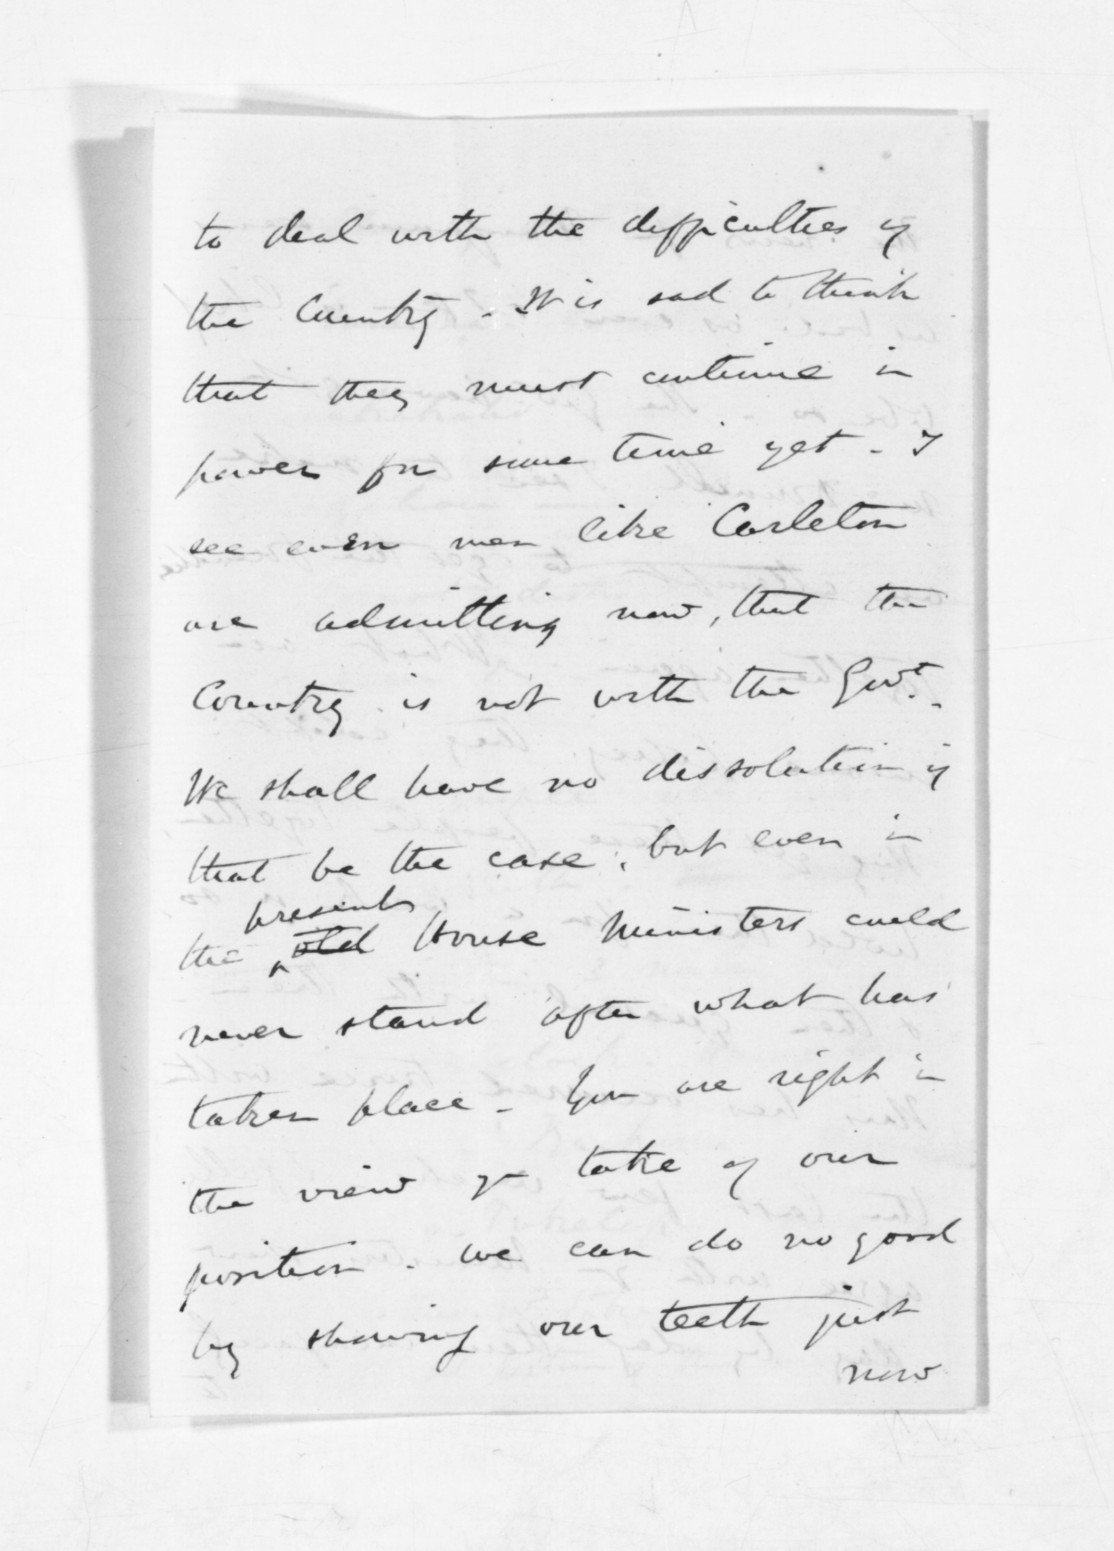 to deal with the difficulties of
the Country. It is sad to think
that they must continue in
power for some time yet. I
see even men like Carleton
are admitting now, that the
Country is not with the Govt.
We shall have no dissolution if
that be the case, but even in
present
the ^ old House Ministers could
never stand after what has
taken place. You are right in
the view yr take of our
position. we can do no good
by showing our teeth just
now